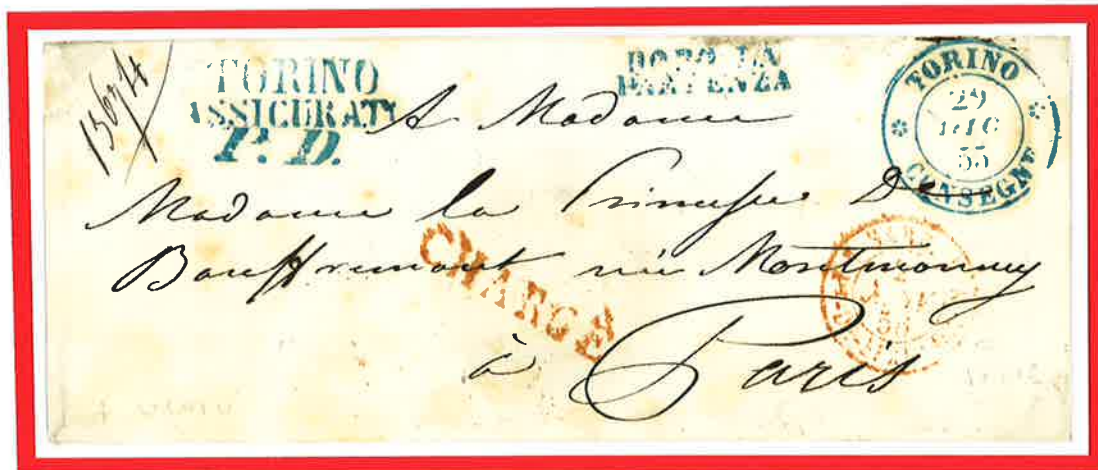 TORINO
ASSICURATI
P. D.
DOPO LA
PARTENZA
TORINO
29
DIC
55
CONSEGNE
A Madame
Madame la Princesse De
Bauffremont née Montmorency
CHARGÉ
à Paris